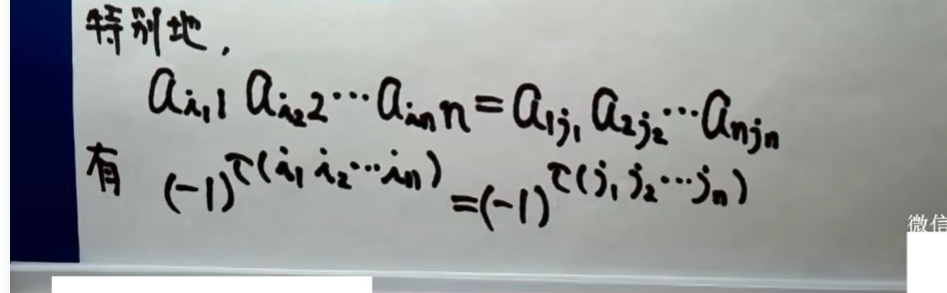 特别地,
a_{i_1 1} a_{i_2 2} ⋯ a_{i_n n} = a_{1j_1} a_{2j_2} ⋯ a_{nj_n}
有 (-1)^{τ(i_1 i_2 ⋯ i_n)} = (-1)^{τ(j_1 j_2 ⋯ j_n)}
微信